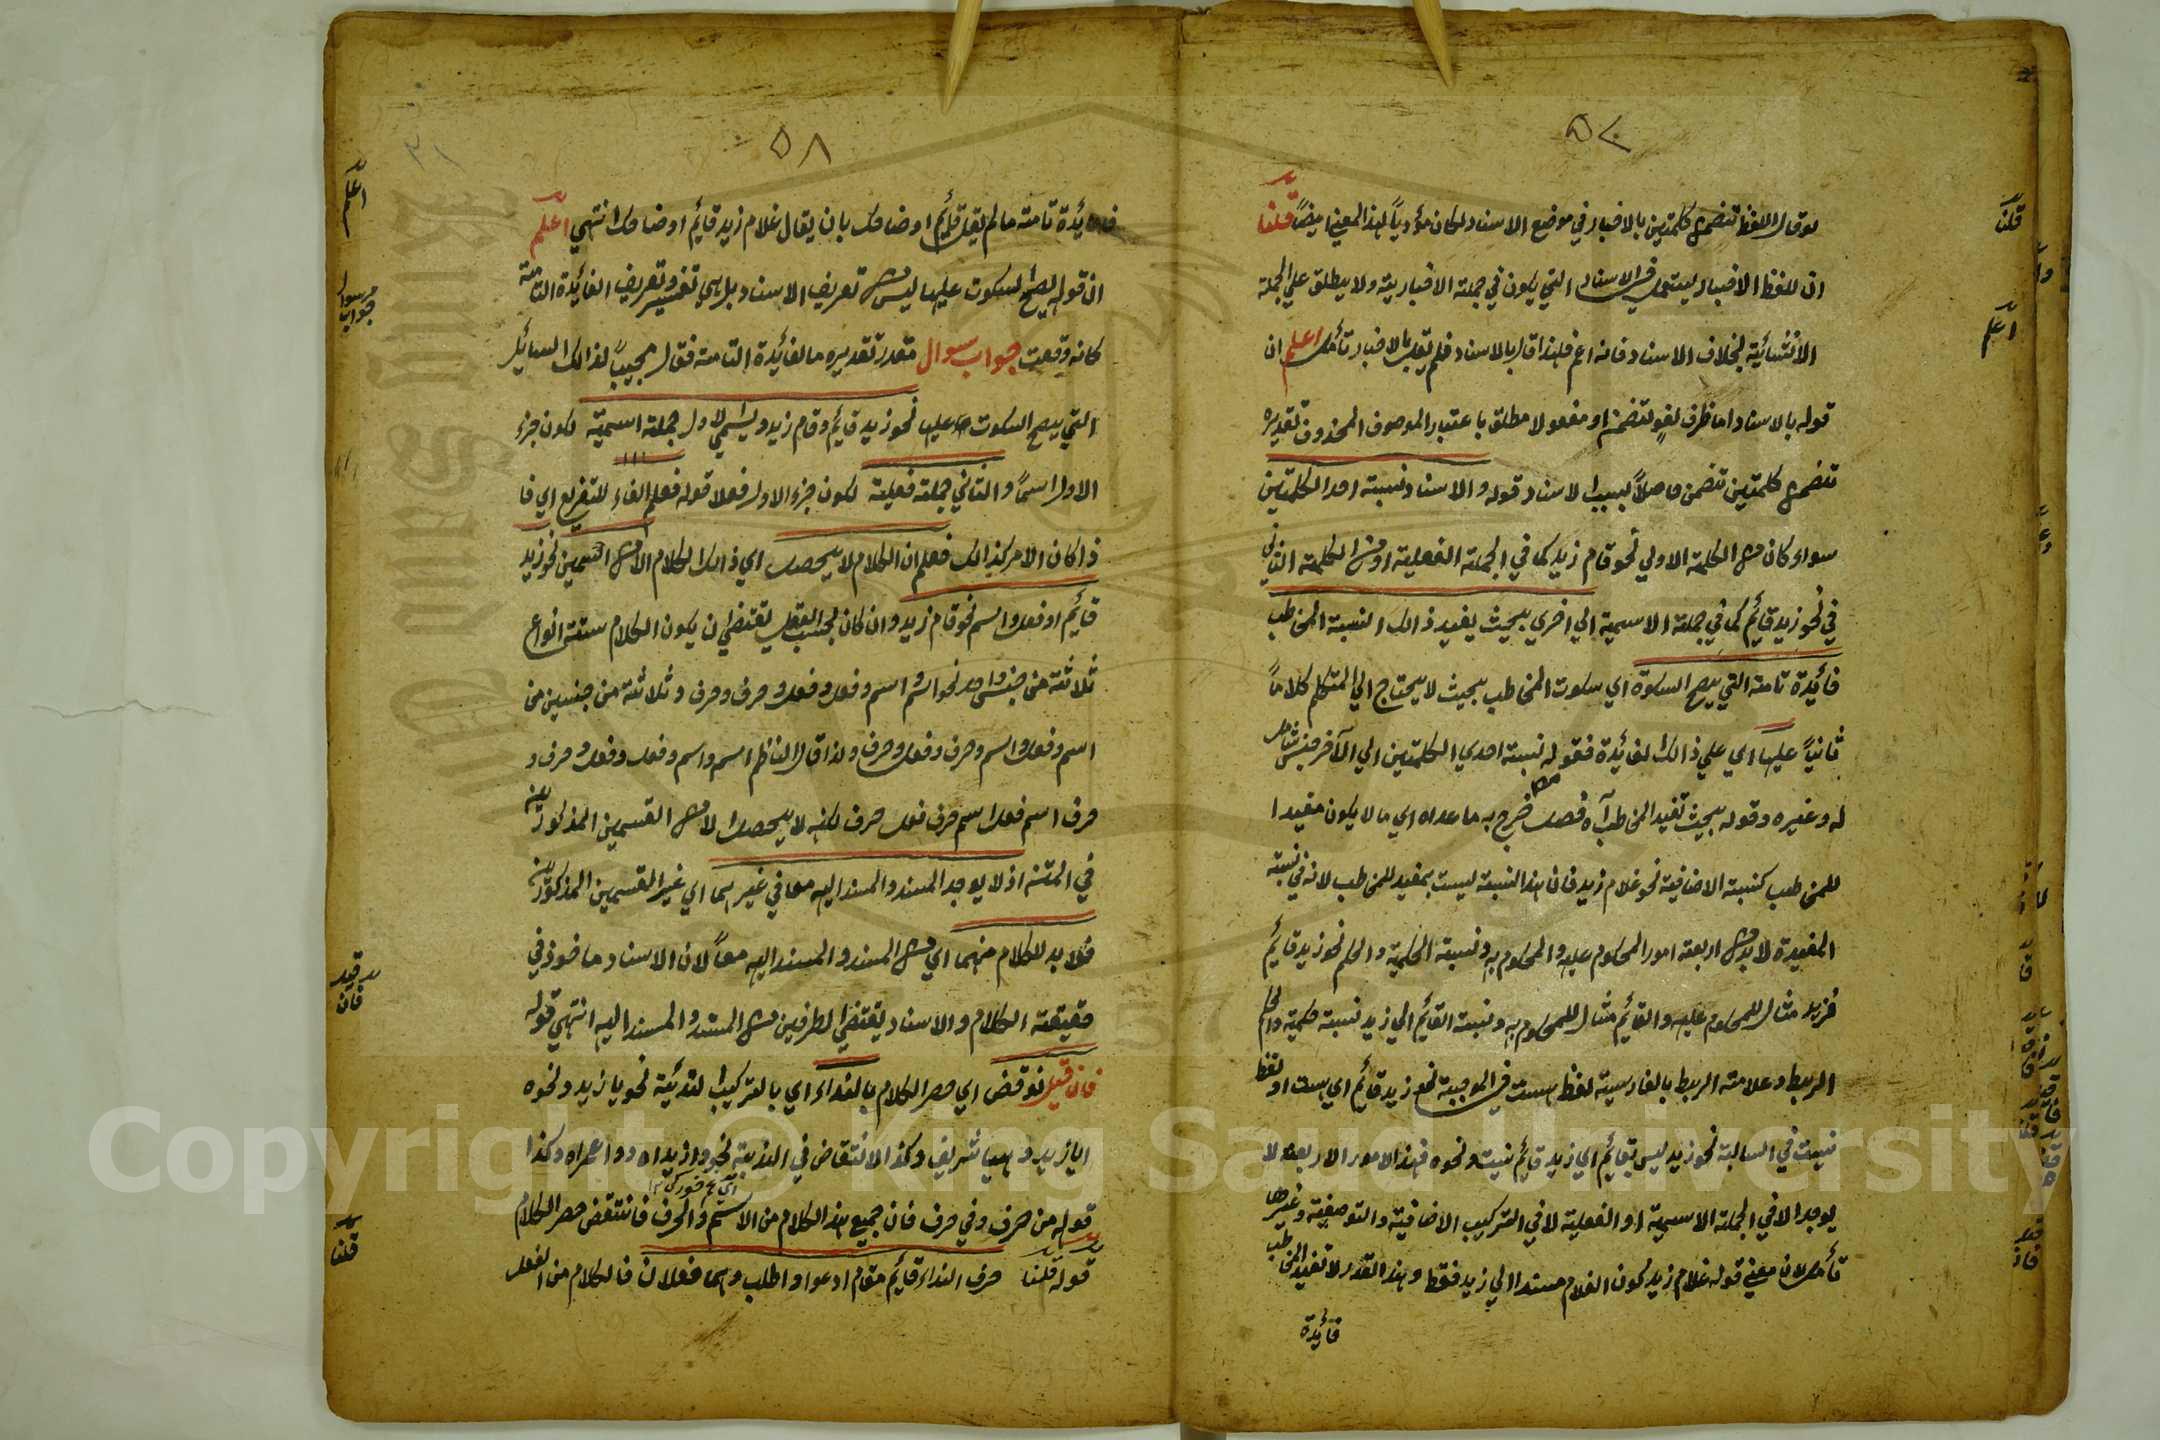 ٥٧
لو قال اللفظ تضمن كلمتين بالاخبار في موضع الاسناد لكان مؤدياً لهذا المعني ايضاً قلنا
ان لفظ الاخبار يستعمل في الاسناد التي يكون في جملة الاخبارية ولا يطلق علي الجملة
الانشائية بخلاف الاسناد فانه اعم فلهذا قال بالاسناد فلم يقل بالاخبار تأمل اعلم ان
قوله بالاسناد اما ظرف لغو لتضمن او مفعول لا مطلق باعتبار الموصوف المحذوف تقديره
تضمن كلمتين تضمن حاصلاً بسبب الاسناد قوله والاسناد نسبة احد الكلمتين
سواء كان من الكلمة الاولي نحو قام زيد كما في الجملة الفعلية او من الكلمة الثاني
في نحو زيد قائم كما في جملة الاسمية الي اخري بحيث يفيد ذالك النسبة المخاطب
فائدة تامة التي يصح السكوة اي سكوت المخاطب بحيث لا يحتاج الي المتكلم كلاماً
ثانياً عليها اي علي ذالك الفائدة فقوله نسبة احدي الكلمتين الي الآخر جنس شامل
له وغيره وقوله بحيث تفيد المخاطب آه فصل خرج به ما عداه اي ما لا يكون مفيدا
للمخاطب كنسبة الاضافية نحو غلام زيد فان هذا النسبة ليست بمفيد للمخاطب لانه في نسبة
المفيدة لا بد من اربعة امور المحكوم عليه والمحكوم به ونسبة الحكمية والحكم نحو زيد قائم
فزيد مثال للمحكوم عليه والقائم مثال للمحكوم به ونسبة القائم الي زيد نسبة حكمية والحكم
الربط وعلامة الربط بالفارسية لفظ هست في الموجبة نحو زيد قائم اي هست او لفظ
نيست في السالبة نحو زيد ليس بقائم اي زيد قائم نيست ونحوه فهذا الامور الاربعة لا
يوجد الا في الجملة الاسمية او الفعلية لا في التركيب الاضافية والتوصفية وغيرها
تأمل لان معني قوله غلام زيد كون الغلام مسندا الي زيد فقط وهذا القدر لا تفيد المخاطب
فائدة
قلنا
اعلم
٥٨
٣١
فائدة تامة ما لم يقل قائم او ضاحك بان يقال غلام زيد قائم او ضاحك انتهي اعلم
ان قوله يصح السكوت عليها ليس من تعريف الاسناد بل هي تفسير وتعريف الفائدة التامة
كانه وقعت جواب سوال مقدر تقديره ما لفائدة التامة فقال مجيباً لذالك السائل
التي يصح السكوت عليها نحو زيد قائم وقام زيد ويسمي الاول جملة اسمية لكون جزء
الاول اسماً والثاني جملة فعلية لكون جزء الاول فعلا قوله فعلم الفاء للتفريع اي فا
ذا كان الامر كذالك فعلم ان الكلام لا يحصل اي ذالك الكلام الا من اسمين نحو زيد
قائم او فعل واسم نحو قام زيد وان كان بحسب العقل يقتضي ان يكون الكلام ستة انواع
ثلاثة من جنس واحد نحو اسم واسم وفعل وفعل وحرف وحرف وثلاثة من جنسين من
اسم وفعل واسم وحرف وفعل وحرف ولذا قال الناظم اسم واسم وفعل وفعل وحرف و
حرف اسم فعل اسم حرف فعل حرف لكنه لا يحصل الا من القسمين المذكورين
في المتن اذ لا يوجد المسند والمسند اليه معا في غيرهما اي غير القسمين المذكورين
فلا بد للكلام منهما اي من المسند والمسند اليه معاً لان الاسناد ماخوذ في
حقيقة الكلام والاسناد يقتضي الطرفين من المسند والمسند اليه انتهي قوله
فان قيل نوقض اي حصر الكلام بالنداء اي بالتركيب الندئية نحو يا زيد ونحوه
ايا زيد وهيا شريف وكذا الانتقاض في الندبة نحو وا زيداه ووا عمراه وكذا
قوله من حرف وفي حرف فان جميع هذا الكلام من الاسم والحرف فانتقض حصر الكلام
قوله قلنا حرف النداء قائم مقام ادعوا واطلب وهما فعلان فالكلام من الفعل
اعلم
سوال
جواب
قيل
فان
قلنا